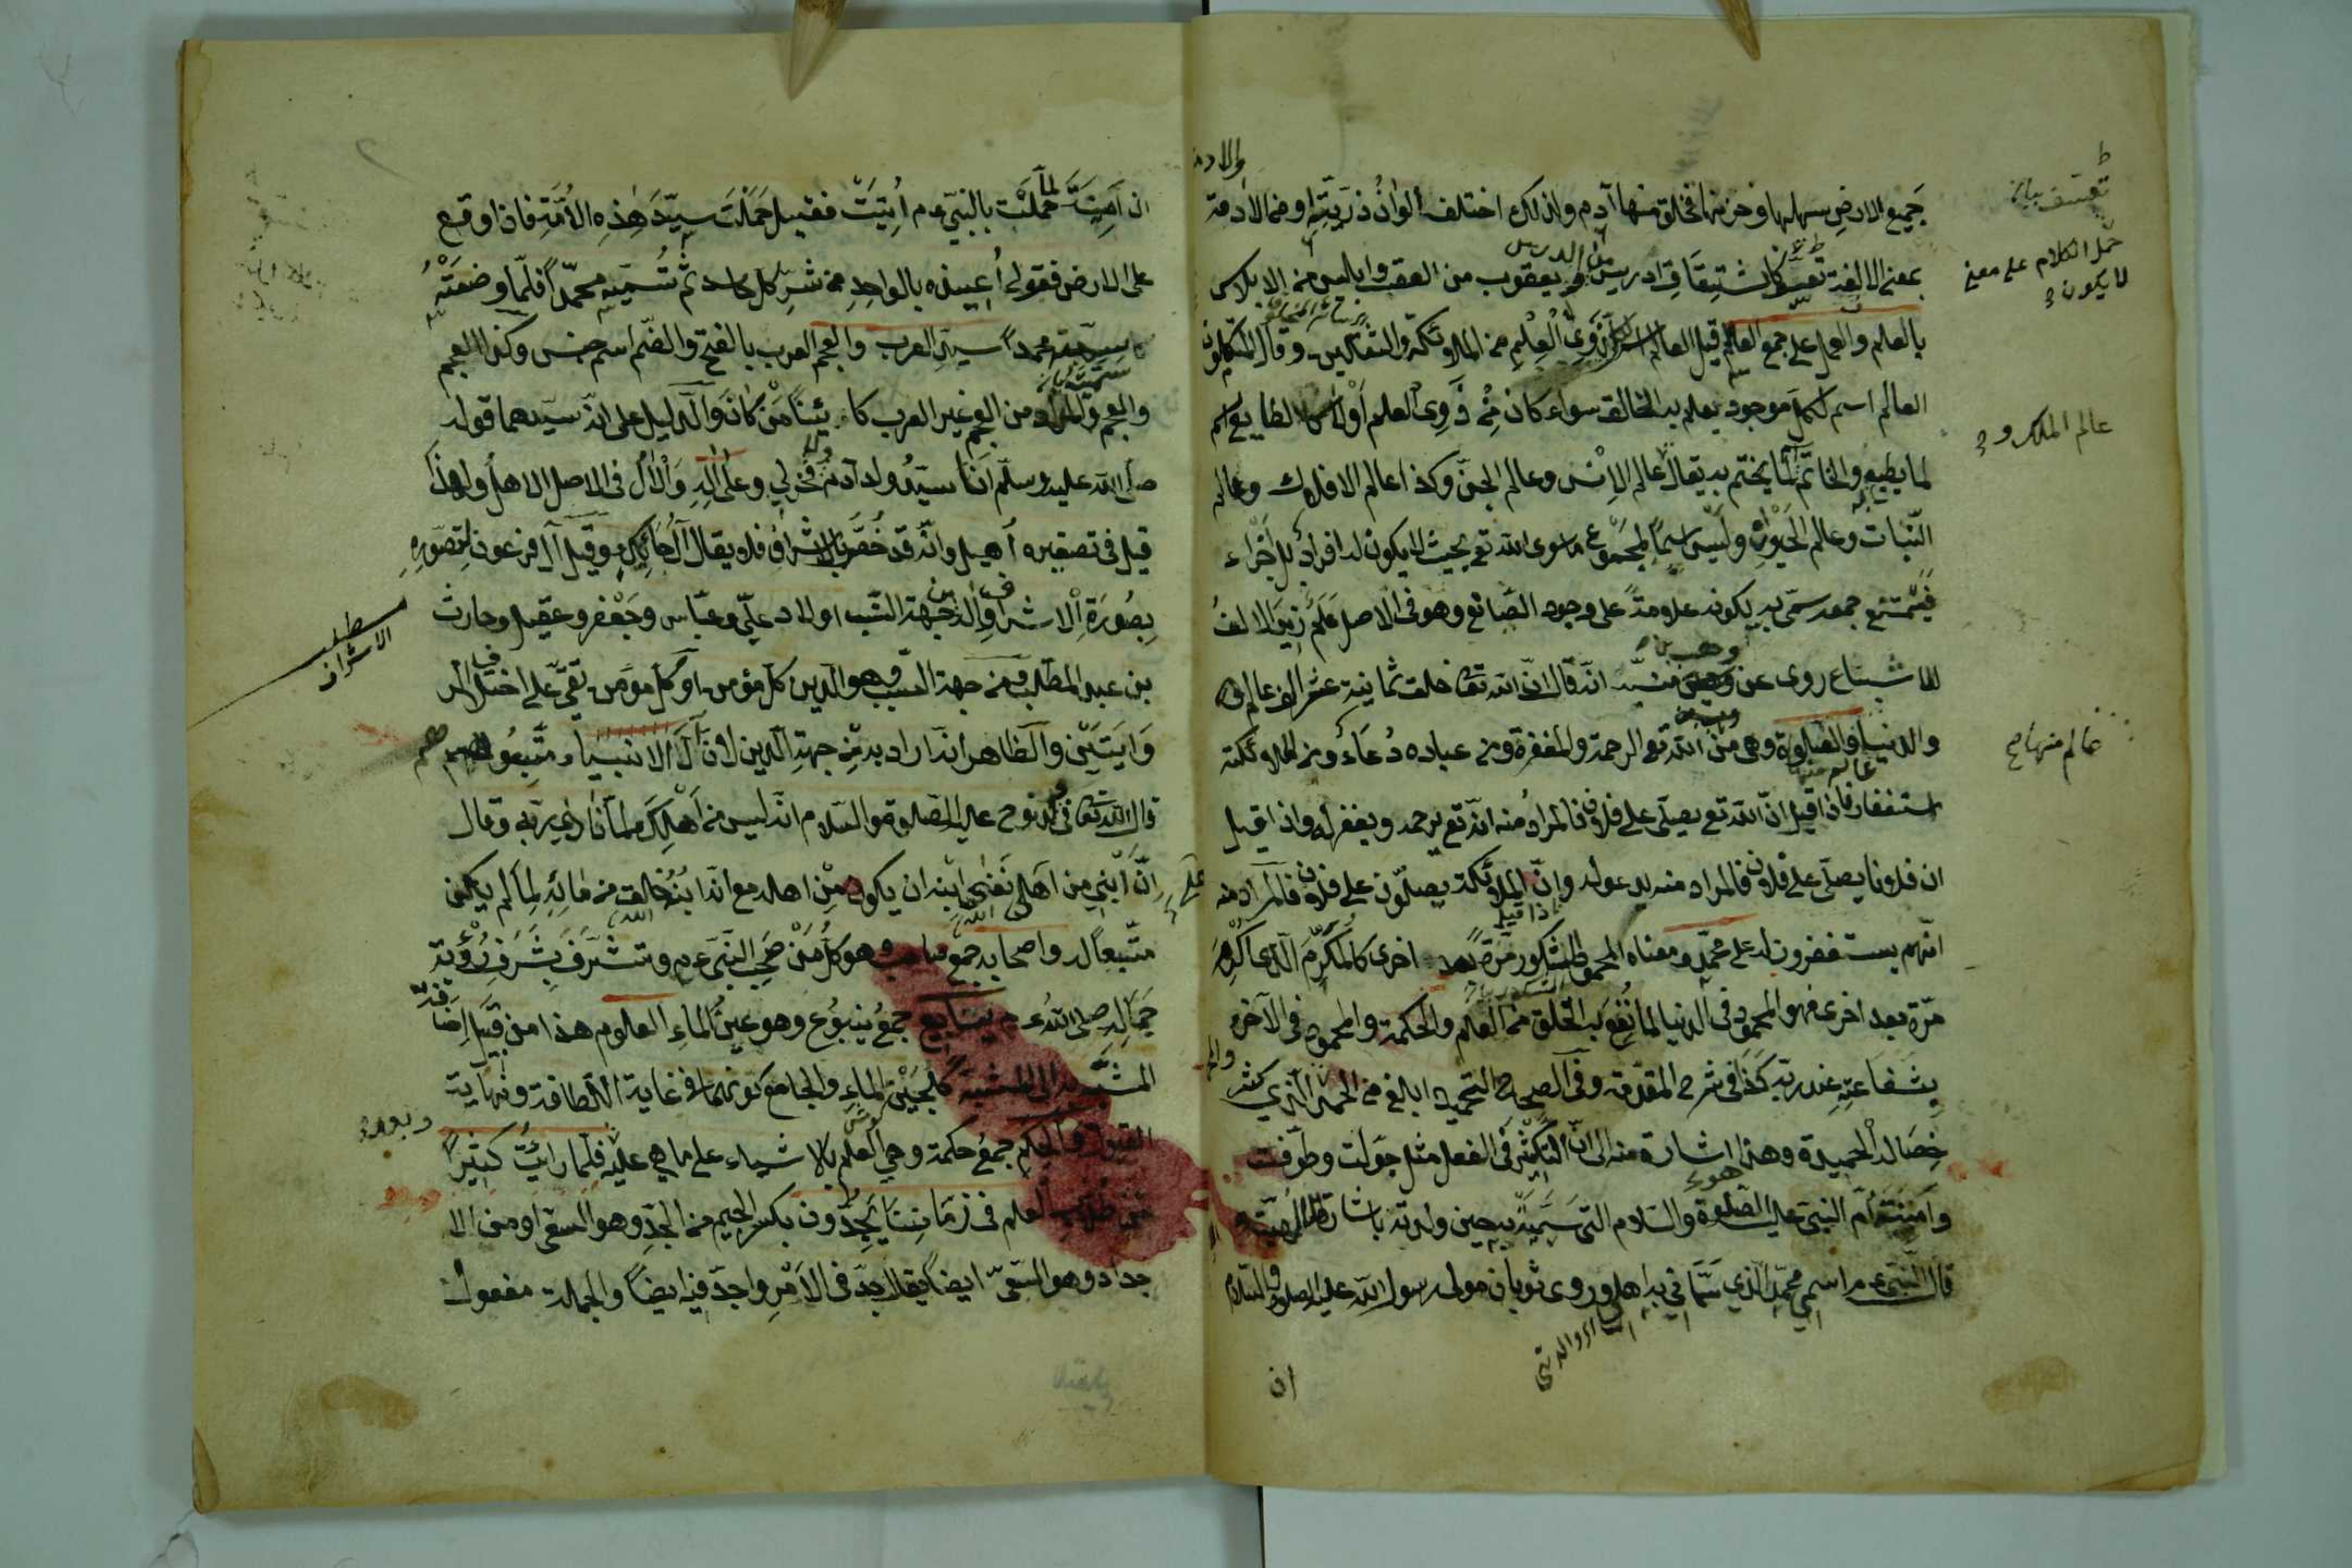 جميع الارض سهلها وحزنها فخلق منها آدم ولذلك اختلف الوان ذريته او من الادمة
بمعنى الالفة تعسف كاشتقاق ادريس من الدرس ويعقوب من العقب وابليس من الابلاس
بالعلم والعمل على جمع العالم قيل العالم اسم لذوي العلم من الملائكة والثقلين وقال المتكلمون
العالم اسم لكل موجود يعلم به الخالق سواء كان من ذوي العلم اولا كالطابع اسم
لما يطبع به والخاتم لما يختم به يقال عالم الانس وعالم الجن وكذا عالم الافلاك وعالم
النبات وعالم الحيوان وليس اسما لمجموع ما سوى الله تع بحيث لا يكون له افراد بل اجزاء
فيمتنع جمعه سمى به لكونه علامة على وجود الصانع وهو في الاصل علم زيد الالف
للاشباع روى عن وهب بن منبه انه قال ان الله تعا خلق ثمانية عشر الف عالم
والدنيا عالم منها والصلوة وهي من الله تع الرحمة والمغفرة ومن عباده دعاء ومن الملائكة
استغفار فاذا قيل ان الله تع يصلي على فلان فالمراد منه انه تع يرحمه ويغفر له واذا قيل
ان فلانا يصلي على فلان فالمراد منه يدعو له واذا قيل ان الملائكة يصلون على فلان فالمراد منه
انهم يستغفرون له على محمد ومعناه المحمود المشكور مرة بعد اخرى كالمكرم الذي اكرم
مرة بعد اخرى فهو المحمود في الدنيا لما نفع به الخلق من العلم والحكمة والمحمود في الآخرة
بشفاعته عند ربه كذا في شرح المقدمة وفي الصحاح التحميد ابلغ من الحمد والمحمد الذي كثر
خصاله الحميدة وهذا اشارة منه الى ان التكثير في الفعل مثل جولت وطوفت
وآمنة ام النبي عليه الصلوة والسلام التي سميته به حين ولدته باشارة
قال النبي عم اسمي محمد الذي سماني به اهلي وروى ثوبان مولى رسول الله عليه الصلوة والسلام
ان
تعسف بيان
حمل الكلام على معنى
لا يكون
عالم الملك و
عالم منها صح
ان آمنة لما حملت بالنبي عم أتيت فقيل حملت سيد هذه الامة فاذا وقع
على الارض فقولي أعيذه بالواحد من شر كل حاسد ثم تسميه محمدا فلما وضعته
سمته محمدا سيد العرب والعجم العرب بالفتح والضم اسم جنس وكذا العجم
والعجم والمراد من العجم غير العرب كائنا من كان والدليل على انه سيدهما قوله
صلى الله عليه وسلم انا سيد ولد آدم ولا فخر لي وعلى آله والآل في الاصل الاهل ولهذا
قيل في تصغيره أهيل وانه قد خص بالاشراف فلا يقال آل حائك وقيل آل فرعون لتصوره
بصورة الاشراف والآل من جهة النسب اولاد علي وعباس وجعفر وعقيل وحارث
بن عبد المطلب ومن جهة السبب وهو الدين كل مؤمن او كل مؤمن تقي على اختلاف
الروايتين والظاهر انه اراد به من جهة الدين لان آل الانبياء متبعوهم
قال الله تعا في ابن نوح عليه الصلوة والسلام انه ليس من اهلك لما نادى ربه وقال
ان ابني من اهلي نفى ابنه ان يكون من اهله مع انه ابنه خالف من مائه لما لم يكن
متبعا له واصحابه جمع صاحب وهو كل من صحب النبي عم وتشرف بشرف رؤية
جماله صلى الله عم ينابيع جمع ينبوع وهو عين الماء العلوم هذا من قبيل اضافة
المشبه به الى المشبه كلجين الماء والجامع كونهما في غاية اللطافة ونهاية
القبول والحكم جمع حكمة وهي العلم بالاشياء على ما هي عليه وبعد فلما رأيت كثيرا
من طلاب العلم في زماننا يجدون بكسر الجيم من الجد وهو السعي او من الا
جداد وهو السعي ايضا يقال جد في الامر واجد فيه ايضا والجملة مفعول
مطلب
الاشراف
وبعد